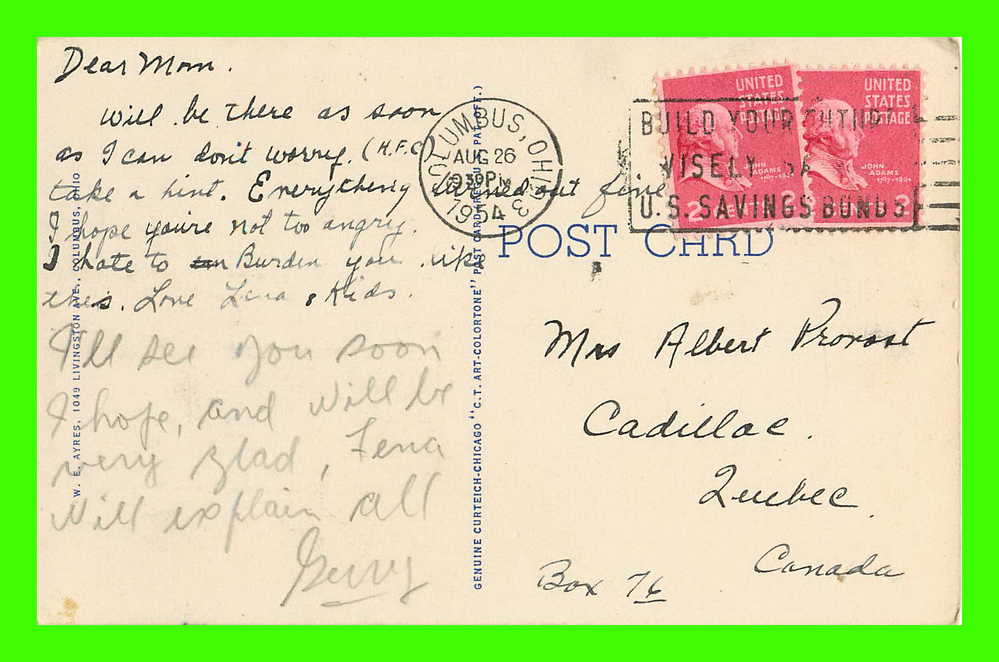 Dear Mom.
Will be there as soon
as I can don't worry. (H.F.C)
take a hint. Everything turned out fine
I hope you're not too angry.
I hate to Burden you like
this. Love Lena & Kids.
I'll see you soon
I hope, and will be
very glad, Lena
Will explain all
Gerry
W. E. AYRES, 1049 LIVINGSTON AVE., COLUMBUS, OHIO
GENUINE CURTEICH-CHICAGO "C. T. ART-COLORTONE" POST CARD (REG. U.S. PAT. OFF.)
COLUMBUS, OHIO
AUG 26
PM
1954
3
BUILD YOUR FUTURE
WISELY
U.S. SAVINGS BONDS
UNITED
STATES
POSTAGE
JOHN
ADAMS
2
UNITED
STATES
POSTAGE
JOHN
ADAMS
1797-1801
2
POST CARD
Mrs Albert Provost
Cadillac.
Quebec.
Canada
Box 76